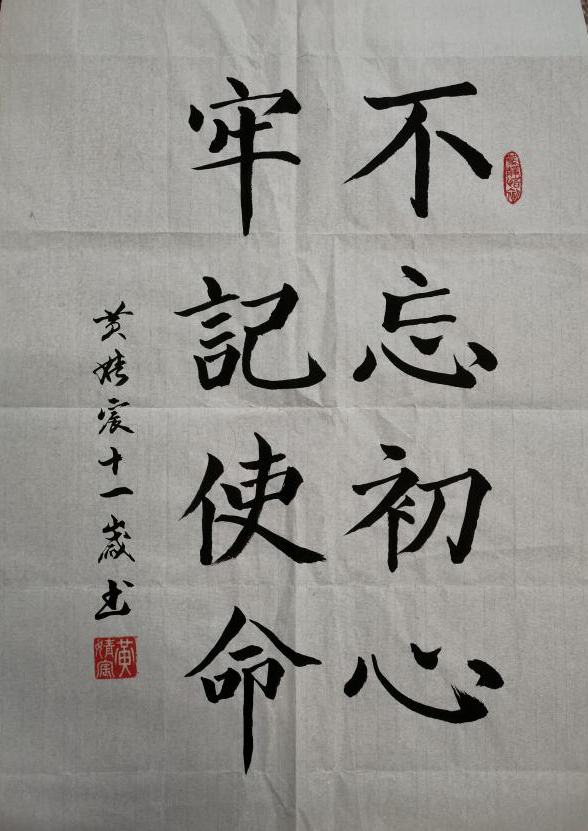 不忘初心
牢記使命
黄婧宸十一歲书
黄婧宸